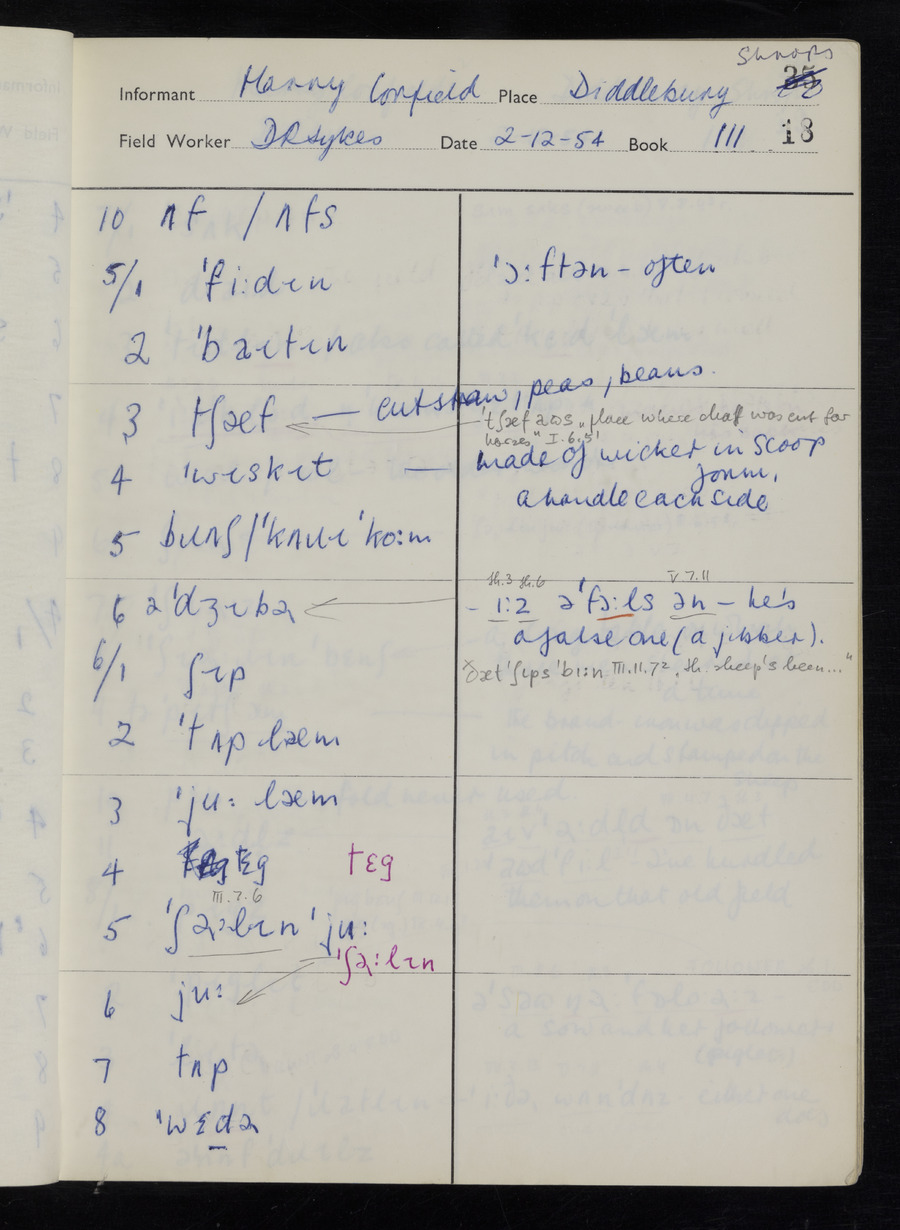 Shrops
Informant Harry Corfield Place Diddlebury 25
Field Worker DRSykes Date 2-12-54 Book III 18
10 ʌf / ʌfs
5/1 ˈfiːdɪn ˈɔːftən - often
2 ˈbaɪtɪn
3 tʃæf — cut straw, peas, beans.
ˈtʃæf aʊs "place where chaff was cut for
horses" I.6.5'
4 ˈwɪskɪt — made of wicker in scoop
form,
a handle each side
5 / ˈkoːm
th.3 th.6 V 7.11
6 əˈdʒɪbə - iːz əˈfɔːls ən - he's
a false one (a jibber).
6/1 ʃɪp ðætˈʃɪps ˈbiːn III.11.7². th. sheep's been..."
2 ˈtʌp læm
3 ˈjuː læm
4 tɛg tɛg
III.7.6
5 ˈʃəːlɪn ˈjuː
ˈʃəːlɪn
6 juː
7 tʌp
8 ˈwɛdə